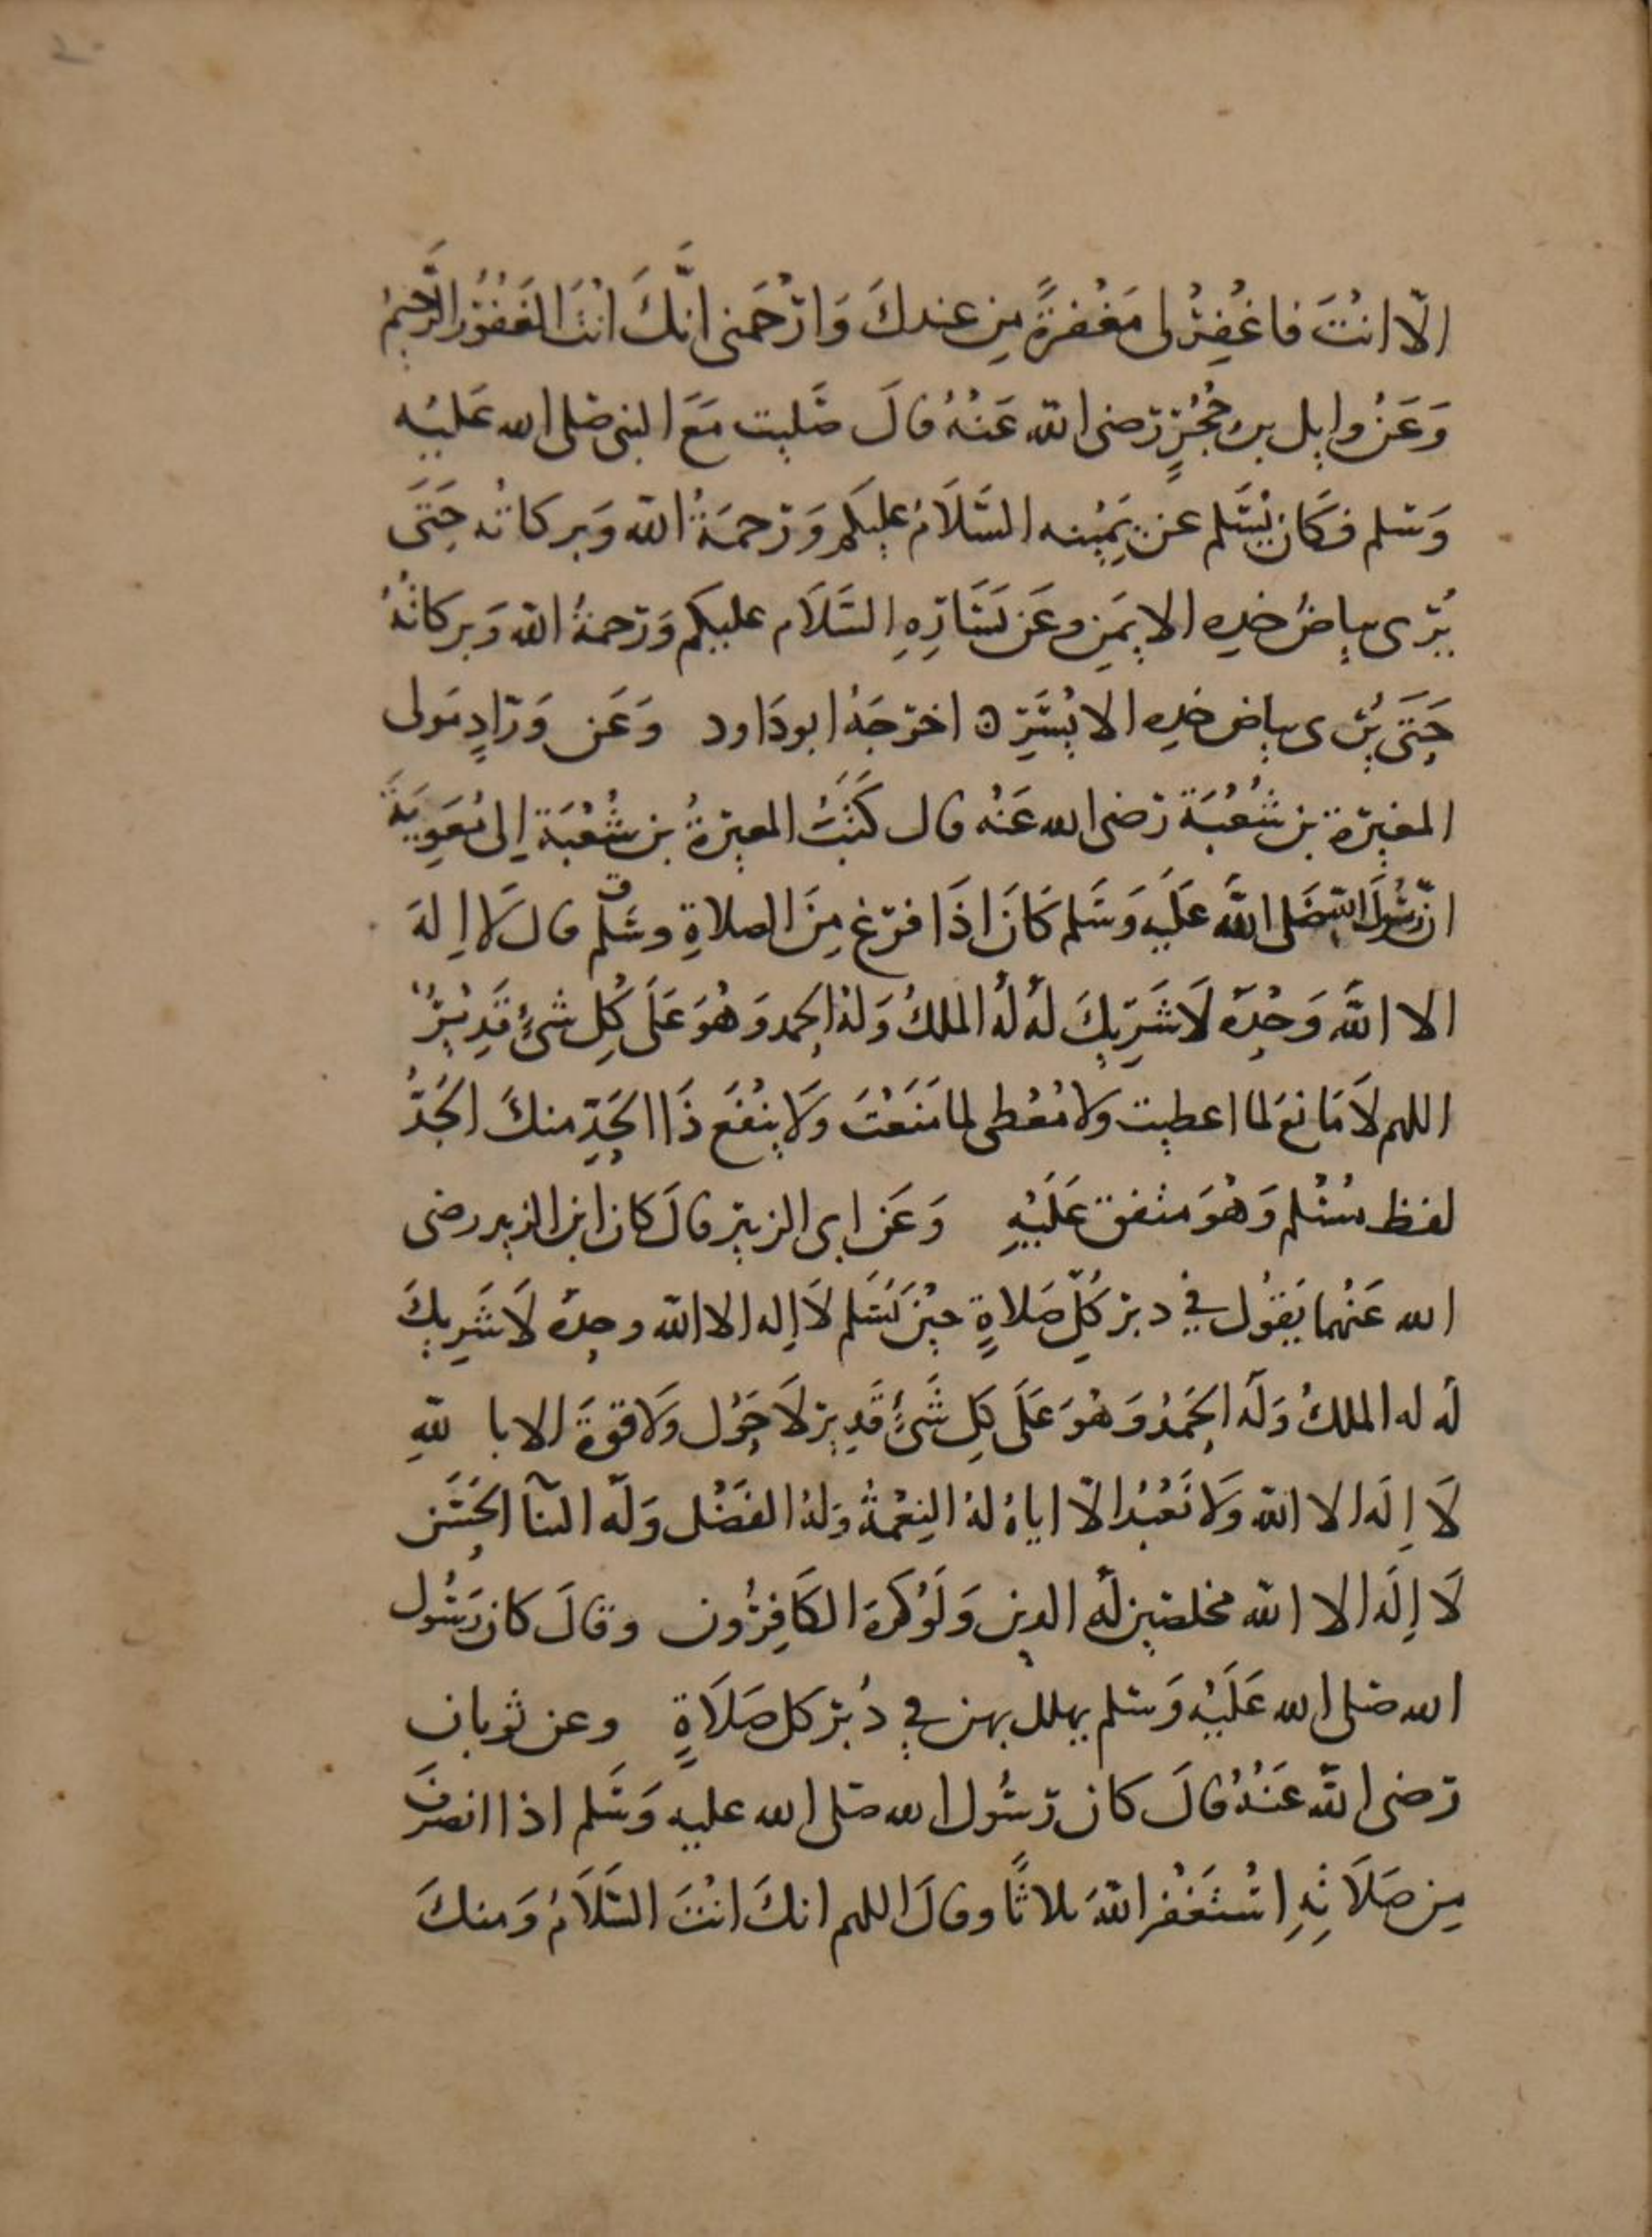 الّا انْتَ فاغْفِرْ لى مَغْفرةً مِن عندكَ وَارْحَمنى انَّكَ انْتَ الغَفُوْرُ الرَّحِيمُ
وَعَنْ وايل بن حُجْرٍ رَضى الله عَنْهُ قالَ صَليت مَعَ النبى صَلى الله عَليْه
وَسَلم فكَان يُسَلم عن يَمِيْنه السَّلَامُ عليكم وَرَحمَةُ الله وَبركاتُه حَتَى
يُرَى بياضُ خدِه الايمَنِ وعَن يَسَارِهِ السَّلَام عليكم وَرَحمةُ الله وَبركاتُهُ
حَتَى يُرى بياض خدِه الايْسَرِ ه اخرَجَهُ ابودَاود وَعَن وَرّادٍ مَولى
المغيرة بن شُعْبَة رَضى الله عَنْه قال كَتَبَ المغيرةُ بن شُعْبَة اِلى مُعَوِيَةَ
انّ رَسُولَ اللهِ صَلى اللَّه عَلَيه وَسَلم كَانَ اِذَا فرَغ مِنَ الصلاةِ وسَلم قال لَا اِلهَ
الا اللَّه وَحْدَه لَا شَرِيكَ لَهُ لَهُ الملكُ وَلهُ الحمد وَهُوَ عَلَى كُلِ شىْءٍ قَدِيْرٌ
اللهم لَا مَانعَ لما اعطيت ولا مُعْطى لما مَنَعْتَ وَلَا ينْفَع ذَا الجَدِّ منكَ الجَدُّ
لفظ مسْلم وَهُوَ متفق عَلَيْهِ وَعَن ابى الزبير قالَ كان ابن الزبير رضى
الله عَنْهما يَقوُل في دبر كُلِّ صَلاةٍ حِيْنَ يَسَلم لَا اِله الا الله وحده لَا شَرِيكَ
لَه له الملكُ وَلَه الحَمْدُ وَهُوَ عَلَى كلِ شَىْءٍ قَدِير لَا حَوْل وَلَا قوةَ الا با للهِ
لَا اِلَه الا الله وَلَا نَعْبُد الّا اياهُ لهُ النِعْمةُ وَلهُ الفَضْل وَلَه الثنآ الحَسَن
لَا اِلَه الا الله مخلصين لَه الدين وَلَوْ كرهَ الكَافِرُون وقالَ كان رَسُول
الله صَلى الله عَلَيْه وَسَلم يهلل بهن في دُبُر كل صَلَاةٍ وعن ثوبان
رَضى الله عَنْهُ قالَ كان رَسُول الله صَلى الله عليه وَسَلم اذا انصرَفَ
مِن صَلَاتِهِ اسْتَغْفر اللهَ ثلاثًا وقالَ اللهم انكَ انْتَ السَّلَامُ وَمنكَ